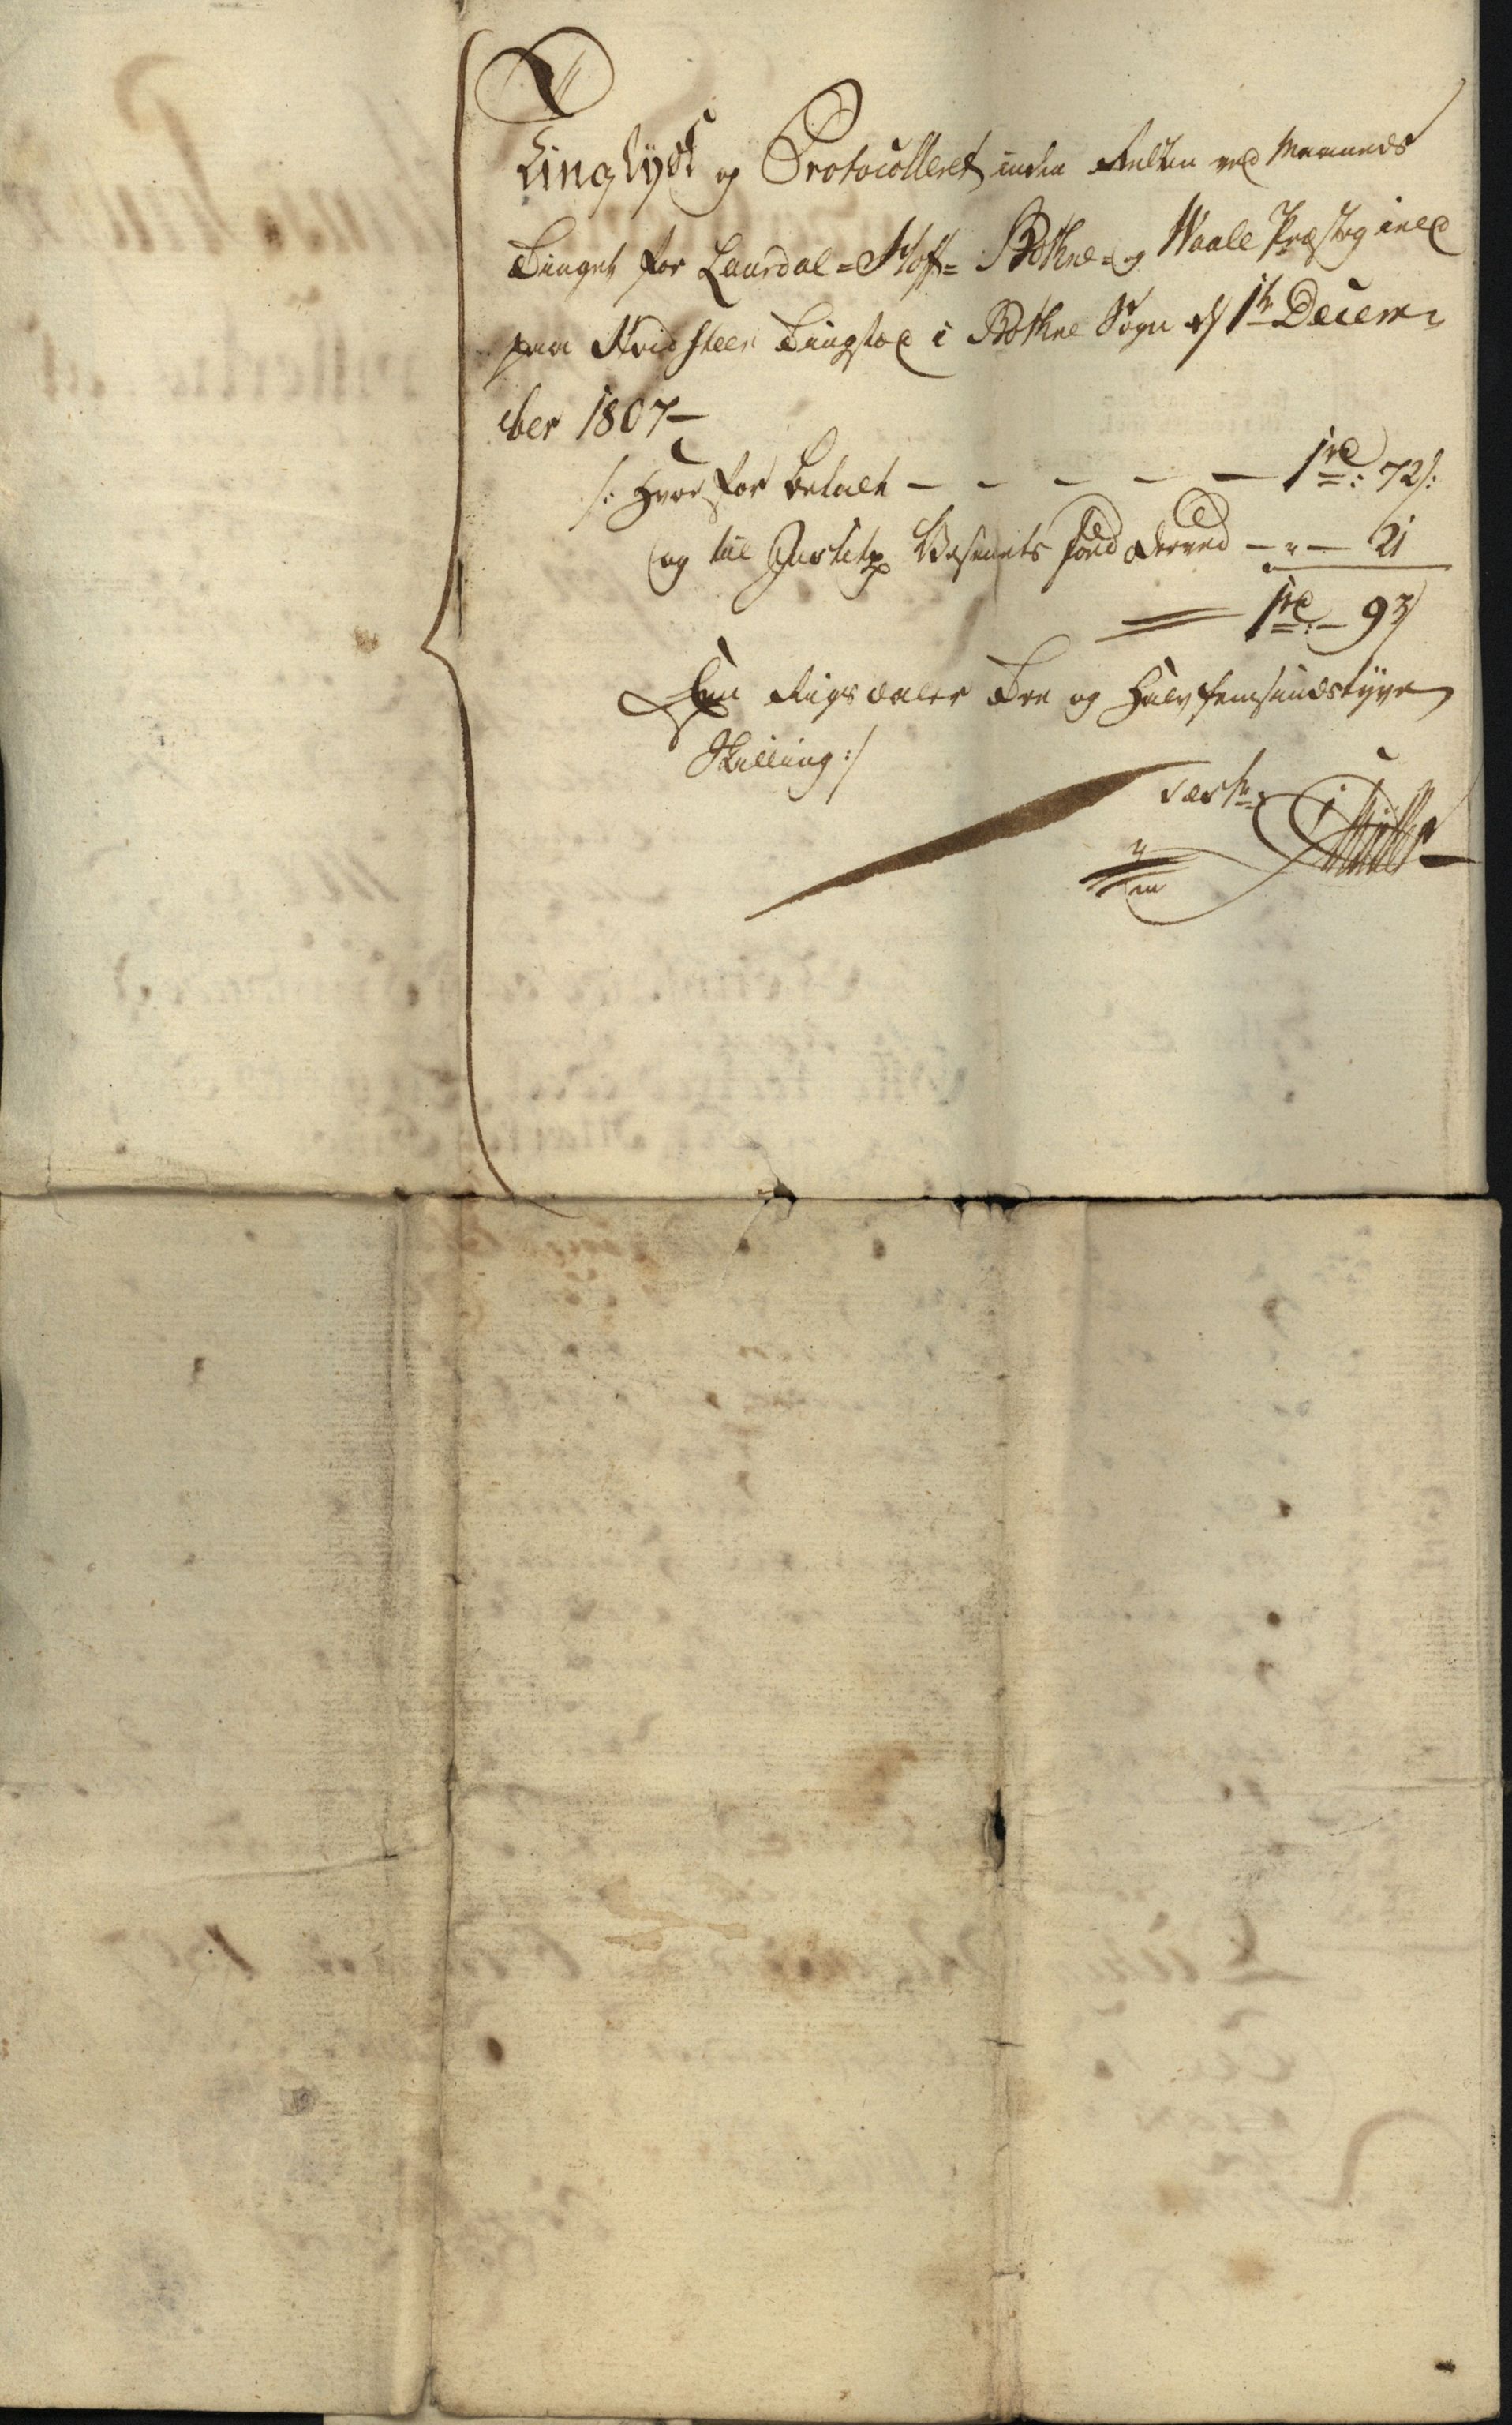 Tinglyst og Protocolleret inden Retten ved Maaneds
Tinget for Laurdal = Hoff = Bothne = og Waale Præstegield
paa Revidsteen Tingsted i Bothne Sogn d 1te Decem=
ber 1807 –
/: Hvorfor betalt – – – – – 1 rd: 72 s:
og til Justitz Væsenets fond derved – " – 21
1 rd: – 93
Een Rigsdaler Tre og Halvfemsindstyve
Skilling :/